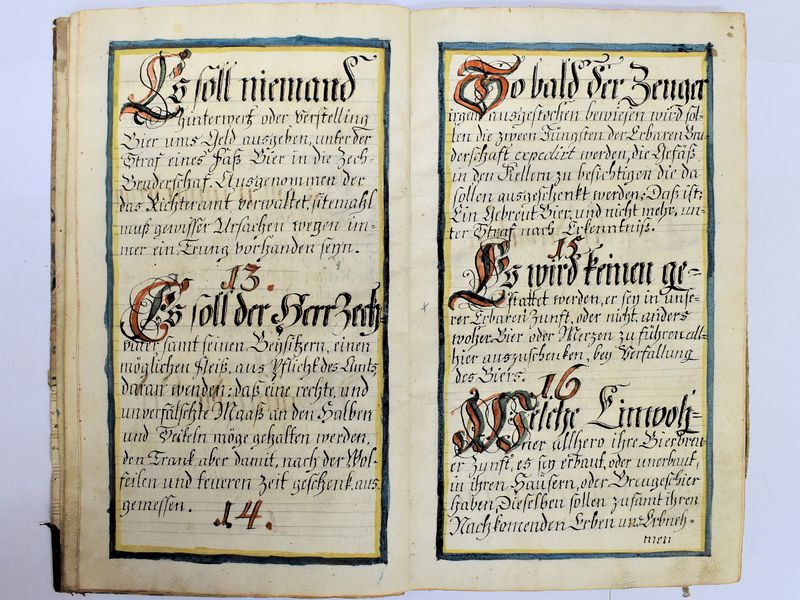 Es söll niemand
hinterwerts oder Verstelling
Bier ums Geld ausgeben, unter der
Straf eines Faß Bier in die Zech-
Bruderschaf. Ausgenommen der
das Richteramt verwaltet, sitemahl
muß gewisser Ursachen wegen im-
mer ein Trung vorhanden seyn.
13.
Es soll der Herr Zech-
vater samt seinen Beysitzern, einen
möglichen Fleiß, aus Pflicht des Amts
daran wenden: daß eine rechte, und
unverfälschte Maaß an den Halben
und Seiteln möge gehalten werden,
den Trank aber damit, nach der Wol-
feilen und teueren Zeit geschenk, aus
gemessen.
14.
So bald der Zeuger
irgend ausgestochen bewiesen wird sol-
len die zween Jüngsten der Erbaren Bru-
derschaft expedirt werden, die Gefäß
in den Kellern zu besichtigen die da
sollen ausgeschenkt werden; Daß ist:
Ein Gebreut Bier, und nicht mehr, un-
ter Straf nach Erkenntniß.
15
Es wird keinen ge-
stattet werden, er sey in unse-
rer Erbaren Zunft, oder nicht, anders
woher Bier oder Merzen zu führen all-
hier auszuschenken, bey Verfallung
des Biers.
16
Welche Einwoh-
ner allhero ihre Bierbrau-
er Zunft, es sey erbaut, oder unerbaut,
in ihren Häusern, oder Breugeschier
haben, Dieselben sollen zusamt ihren
Nachkomenden Erben und Erbneh-
men